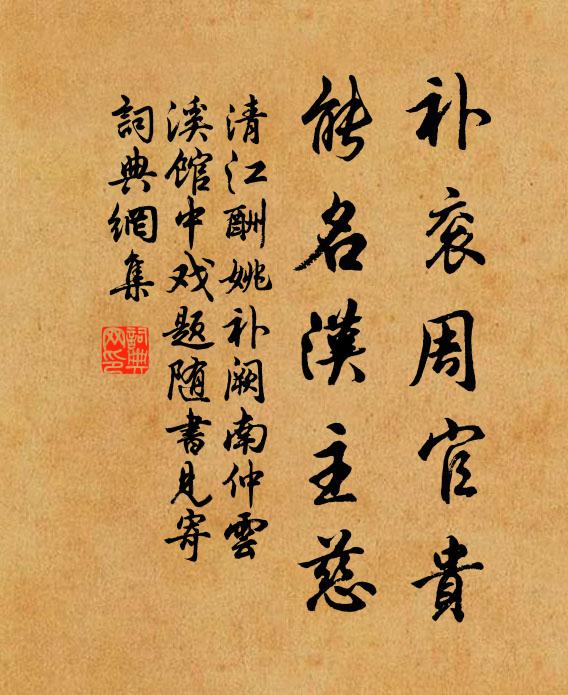 补衮周官貴
能名漢主慈
清江酬姚补阙南仲雲
溪馆中戏题随書見寄
詞典網集
詞典
网印